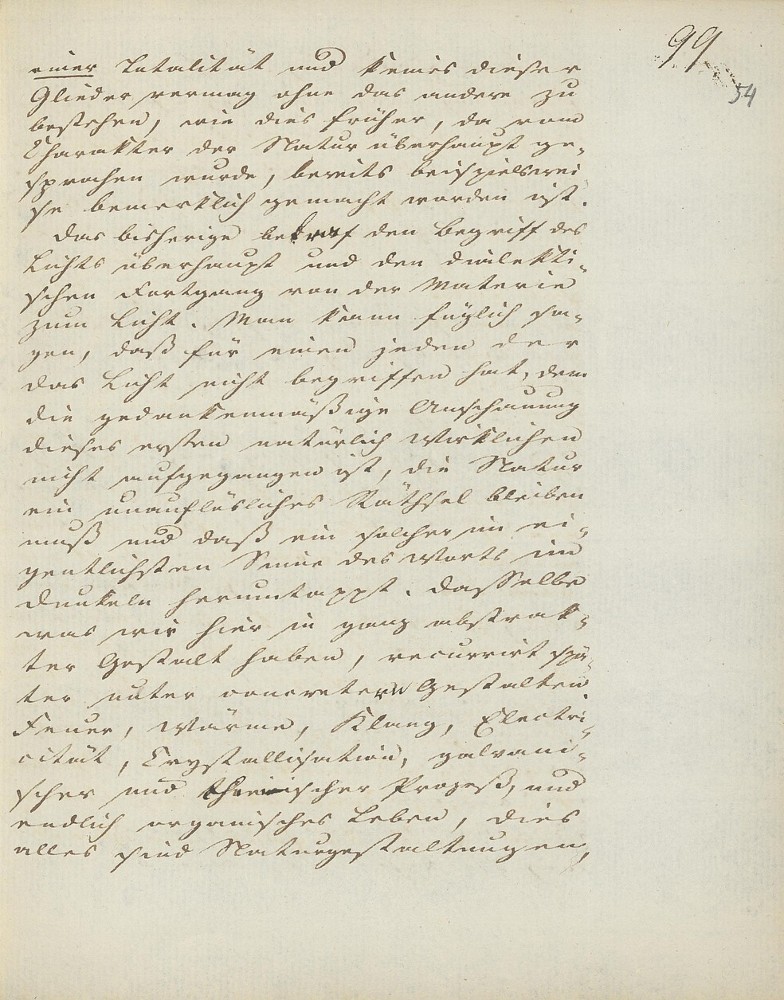 99
54
einer Totalität und keines dieser
Glieder vermag ohne das andere zu
bestehen, wie dies früher, da vom
Charakter der Natur überhaupt ge-
sprochen wurde, bereits beispielswei
se bemerklich gemacht worden ist.
Das bisherige betraf den Begriff des
Lichts überhaupt und den dialekti-
schen Fortgang von der Materie
zum Licht. Man kann füglich sa-
gen, daß für einen jeden der
das Licht nicht begriffen hat, dem
die gedankenmäßige Anschauung
dieses ersten natürlich Wirklichen
nicht aufgegangen ist, die Natur
ein unauflösliches Räthsel bleiben
muß und daß ein solcher im ei-
gentlichsten Sinne des Worts im
Dunkeln herumtappt. Dasselbe
was wir hier in ganz abstrak-
ter Gestalt haben, recurrirt spä-
ter unter concreteren Gestalten
Feuer, Wärme, Klang, Electri-
cität, Crystallisation, galvani-
scher und chemischer Prozeß, und
endlich organisches Leben, dies
alles sind Naturgestaltungen,